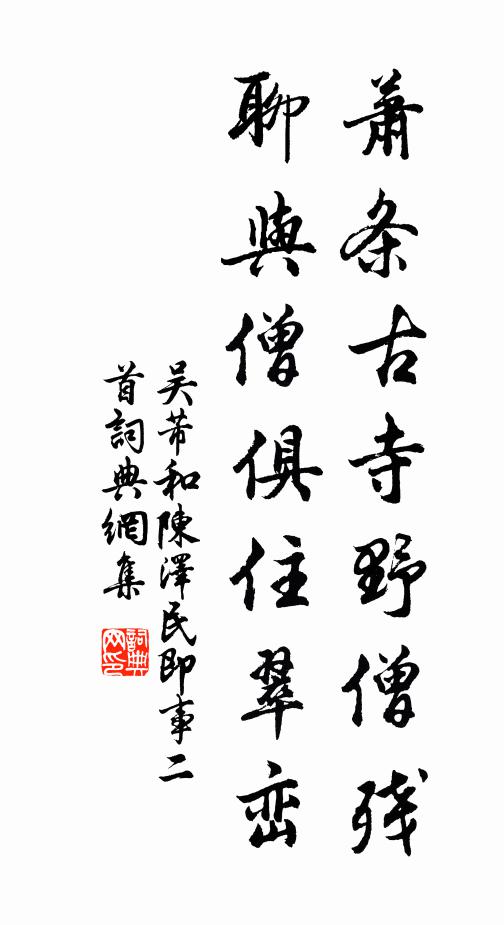 蕭条古寺野僧残
聊與僧俱住翠峦
吴芾和陳澤民即事二
首詞典網集
詞典
网印